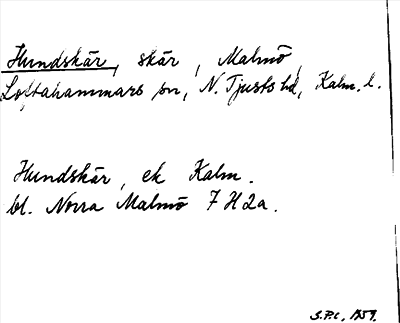 Hundskär, skär, Malmö,
Loftahammars sn, N. Tjusts hd, Kalm. l.
Hundskär, ek Kalm.
bl. Norra Malmö 7 H 2a.
S.P.C. 1959.